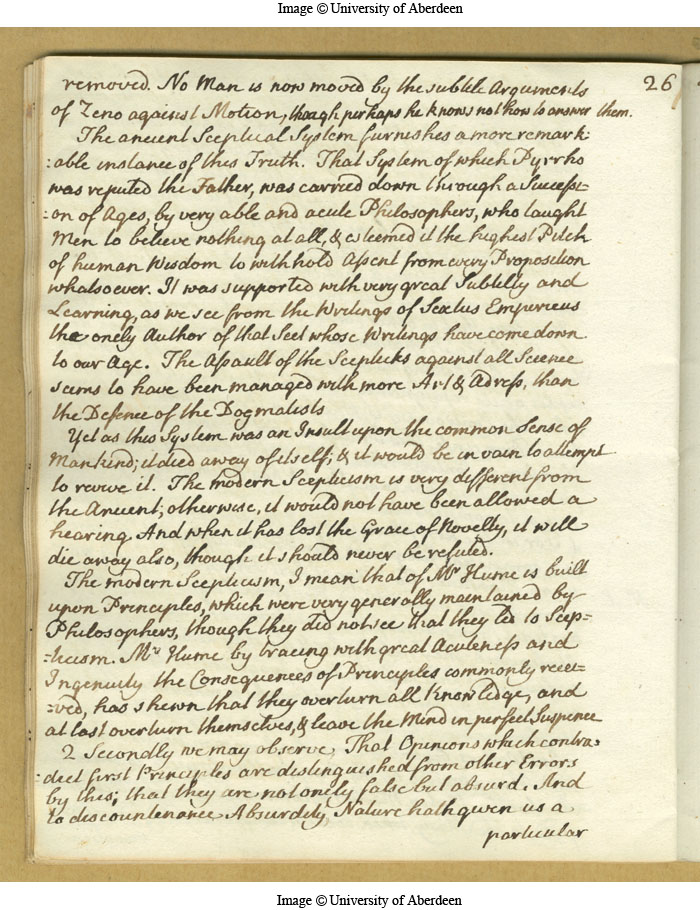 Image © University of Aberdeen
26
removed. No Man is now moved by the subtile Arguments
of Zeno against Motion, though perhaps he knows not how to answer them.
The ancient Sceptical System furnishes a more remark:
:able instance of this Truth. That System of which Pyrrho
was reputed the Father, was carried down through a Successi-
:on of Ages, by very able and acute Philosophers, who taught
Men to believe nothing at all, & esteemed it the highest Pitch
of human Wisdom to withhold Assent from every Proposition
whatsoever. It was supported with very great Subtilty and
Learning, as we see from the Writings of Sextus Empericus
the onely Author of that Sect whose Writings have come down
to our Age. The Assault of the Scepticks against all Science
seems to have been managed with more Art & Adress, than
the Defence of the Dogmatists
Yet as this System was an Insult upon the common Sense of
Mankind; it died away of itself; & it would be in vain to attempt
to revive it. The modern Scepticism is very different from
the Ancient; otherwise, it would not have been allowed a
hearing. And when it has lost the Grace of Novelty, it will
die away also, though it should never be refuted.
The modern Scepticism, I mean that of Mr Hume is built
upon Principles, which were very generally maintained by
Philosophers, though they did not see that they led to Scep-
-ticism. Mr Hume by tracing with great Acuteness and
Ingenuity the Consequences of Principles commonly recei-
-ved, has shewn that they overturn all Knowledge, and
at last overturn themselves, & leave the Mind in perfect Suspence
2 Secondly we may observe, That Opinions which contra-
:dict first Principles are distinguished from other Errors
by this; that they are not onely false but absurd. And
to discountenance Absurdity, Nature hath given us a
particular
Image © University of Aberdeen